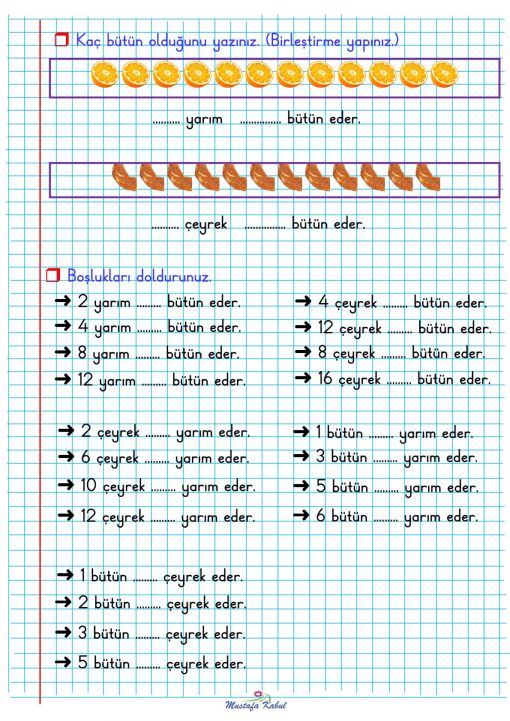 Kaç bütün olduğunu yazınız. (Birleştirme yapınız.)
.......... yarım ............... bütün eder.
.......... çeyrek ............... bütün eder.
Boşlukları doldurunuz.
➔ 2 yarım ......... bütün eder.
➔ 4 yarım ......... bütün eder.
➔ 8 yarım ......... bütün eder.
➔ 12 yarım ......... bütün eder.
➔ 4 çeyrek ......... bütün eder.
➔ 12 çeyrek ......... bütün eder.
➔ 8 çeyrek ......... bütün eder.
➔ 16 çeyrek ......... bütün eder.
➔ 2 çeyrek ......... yarım eder.
➔ 6 çeyrek ......... yarım eder.
➔ 10 çeyrek ......... yarım eder.
➔ 12 çeyrek ......... yarım eder.
➔ 1 bütün ......... yarım eder.
➔ 3 bütün ......... yarım eder.
➔ 5 bütün ......... yarım eder.
➔ 6 bütün ......... yarım eder.
➔ 1 bütün ......... çeyrek eder.
➔ 2 bütün ......... çeyrek eder.
➔ 3 bütün ......... çeyrek eder.
➔ 5 bütün ......... çeyrek eder.
Mustafa Kabul